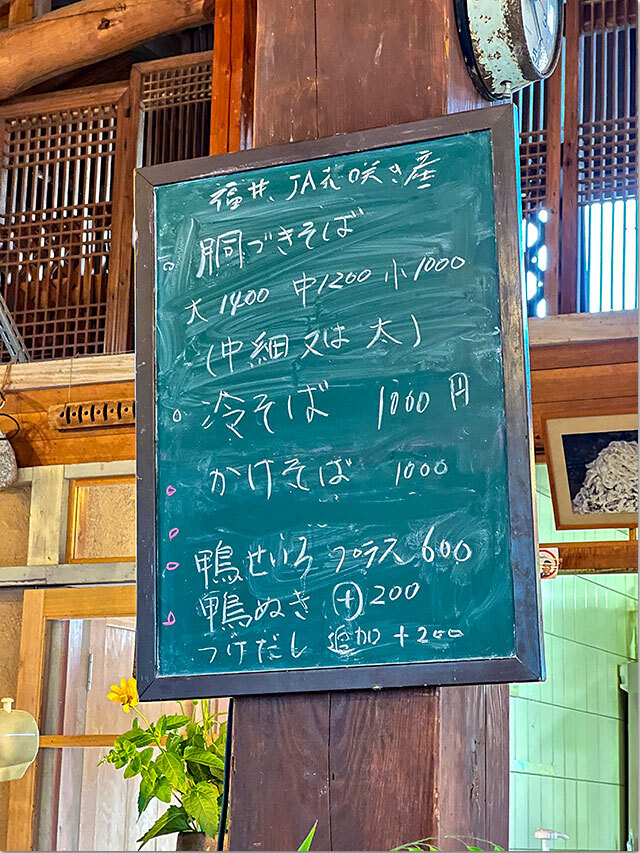 福井、JA花咲き産
胴づきそば
大1400 中1200 小1000
(中細又は太)
冷そば 1000円
かけそば 1000
鴨せいろ プラス600
鴨ぬき ＋200
つけだし 追加 +200